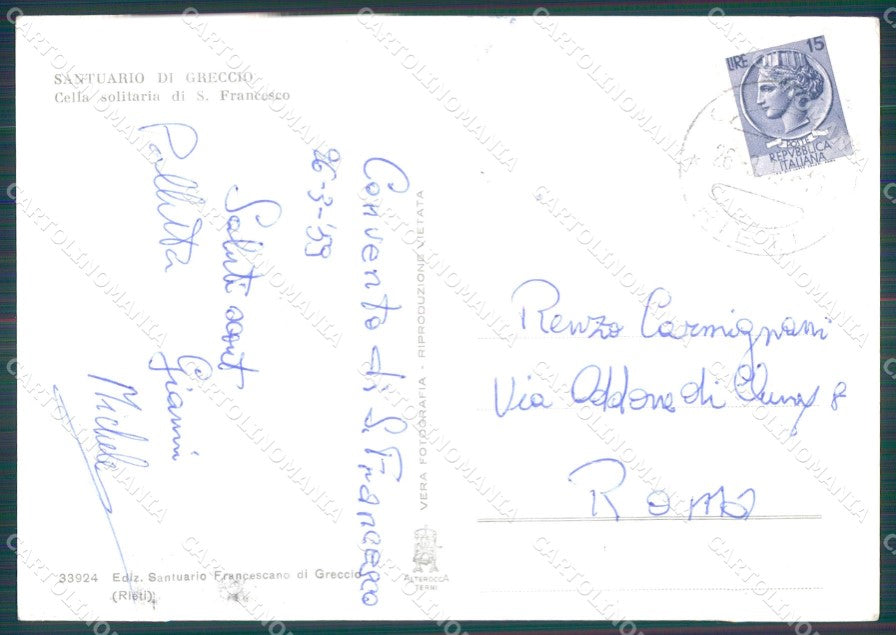 SANTUARIO DI GRECCIO
Cella solitaria di S. Francesco
Convento di S. Francesco
26-3-'59
Saluti scout
Gianni
Michele
LIRE 15
POSTE
REPVBBLICA
ITALIANA
Renzo Carmignani
Via Oddone di Cluny 8
Roma
VERA FOTOGRAFIA - RIPRODUZIONE VIETATA
ALTEROCCA
TERNI
33924 Ediz. Santuario Francescano di Greccio
(Rieti)
CARTOLINOMANIA